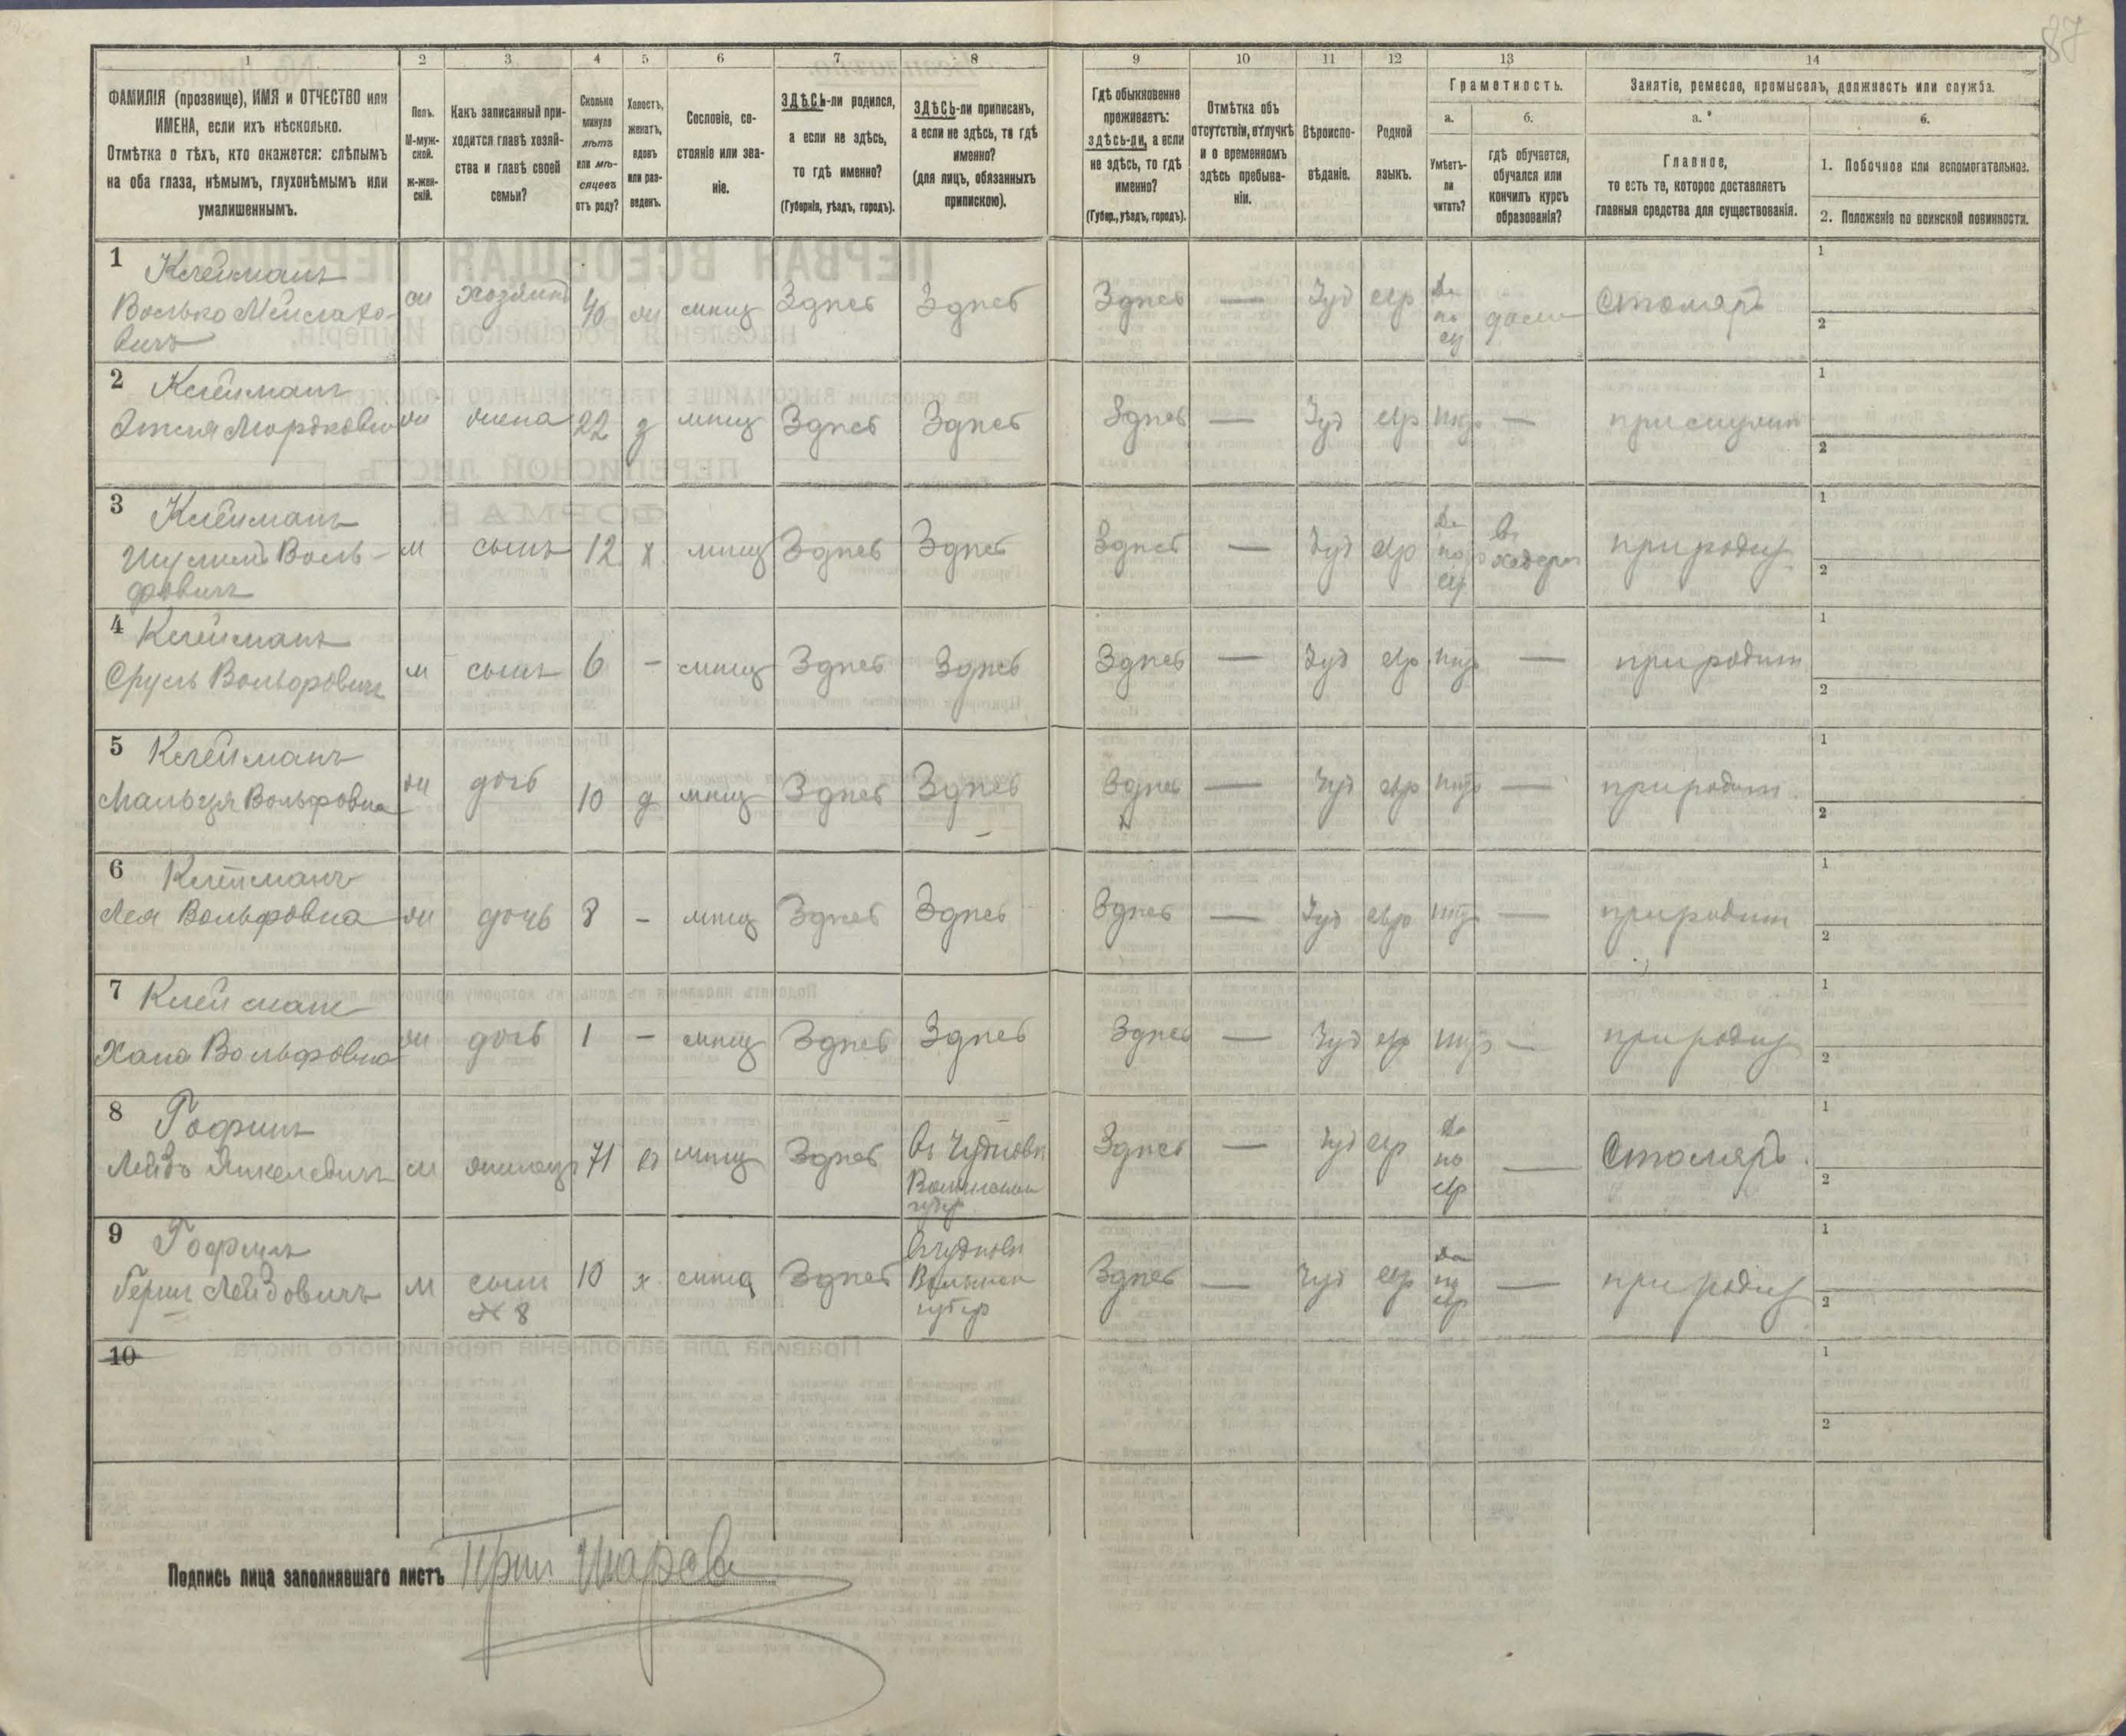 87
1 2 3 4 5 6 7 8 9 10 11 12 13 14
ФАМИЛІЯ (прозвище), ИМЯ и ОТЧЕСТВО или
ИМЕНА, если ихъ нѣсколько.
Отмѣтка о тѣхъ, кто окажется: слѣпымъ
на оба глаза, нѣмымъ, глухонѣмымъ или
умалишеннымъ.
Полъ.
М-муж-
ской.
Ж-жен-
скій.
Какъ записанный при-
ходится главѣ хозяй-
ства и главѣ своей
семьи?
Сколько
минуло
лѣтъ
или мѣ-
сяцевъ
отъ роду?
Холостъ,
женатъ,
вдовъ
или раз-
веденъ.
Сословіе, со-
стояніе или зва-
ніе.
ЗДѢСЬ-ли родился,
а если не здѣсь,
то гдѣ именно?
(Губернія, уѣздъ, городъ).
ЗДѢСЬ-ли приписанъ,
а если не здѣсь, то гдѣ
именно?
(для лицъ, обязанныхъ
припискою).
Гдѣ обыкновенно
проживаетъ:
здѣсь-ли, а если
не здѣсь, то гдѣ
именно?
(Губер., уѣздъ, городъ).
Отмѣтка объ
отсутствіи, отлучкѣ
и о временномъ
здѣсь пребыва-
ніи.
Вѣроиспо-
вѣданіе.
Родной
языкъ.
Грамотность.
а.
Умѣетъ-
ли
читать?
б.
гдѣ обучается,
обучался или
кончилъ курсъ
образованія?
Занятіе, ремесло, промыселъ, должность или служба.
а.
Главное,
то есть то, которое доставляетъ
главныя средства для существованія.
б.
1. Побочное или вспомогательное.
2. Положеніе по воинской повинности.
1 Клейманъ
Волько
вичъ
хозяинъ 40 мѣщ Здѣсь Здѣсь Здѣсь — Іуд евр Да
по
дома Столяръ
1
2
2 Клейманъ
Мордковна жена 22 з мѣщ Здѣсь Здѣсь Здѣсь — Іуд евр нѣтъ —
1
2
3 Клейманъ
Воль-
фовичъ
м сынъ 12 х мѣщ Здѣсь Здѣсь Здѣсь — Іуд евр Да
по
евр
въ
хедерѣ
при родит
1
2
4 Клейманъ
Сруль Вольфовичъ м сынъ 6 – мѣщ Здѣсь Здѣсь Здѣсь — Іуд евр нѣтъ — при родит
1
2
5 Клейманъ
Мальця Вольфовна ж дочь 10 д мѣщ Здѣсь Здѣсь Здѣсь — Іуд евр нѣтъ — при родит
1
2
6 Клейманъ
Лея Вольфовна ж дочь 8 – мѣщ Здѣсь Здѣсь Здѣсь — Іуд евр нѣтъ — при родит
1
2
7 Клейманъ
Хана Вольфовна ж дочь 1 – мѣщ Здѣсь Здѣсь Здѣсь — Іуд евр нѣтъ — при родит
1
2
8
Лейзъ Янкелевичъ м жилецъ 71 в мѣщ Здѣсь Въ Чудновѣ
Волынской
губер
Здѣсь — Іуд евр Да
по
евр
— Столяръ
1
2
9
Герш Лейзовичъ м сынъ
№ 8
10 х мѣщ Здѣсь Въ Чудновѣ
Волынск
губер
Здѣсь — Іуд евр Да
по
евр
— при родит
1
2
10
1
2
Подпись лица заполнявшаго листъ